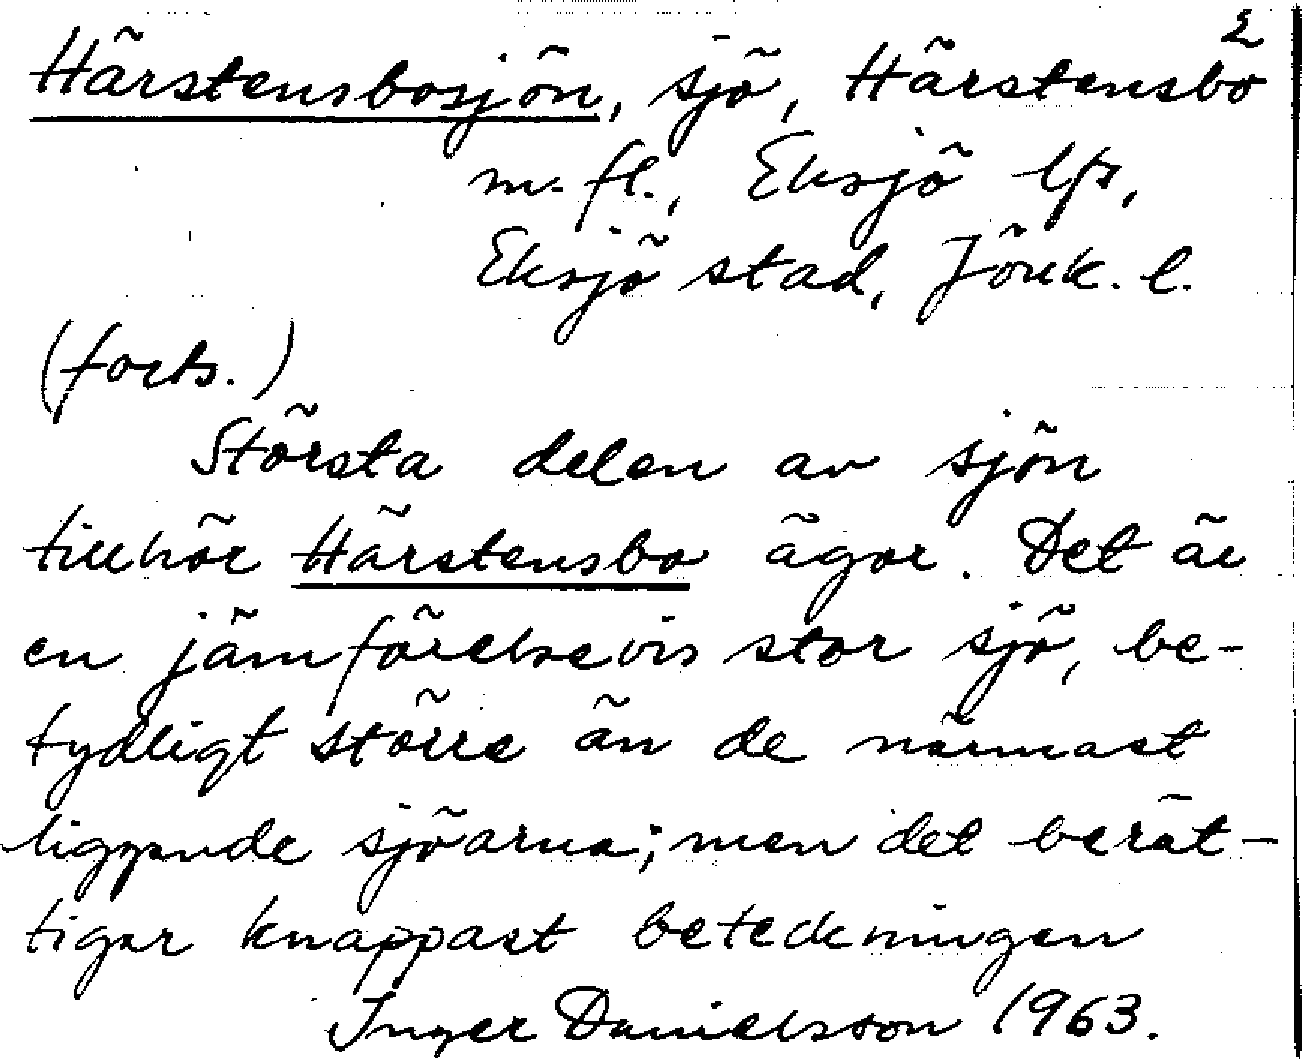 2
Härstensbosjön, sjö, Härstensbo
m. fl., Eksjö lfs,
Eksjö stad, Jönk. l.
(forts.)
Största delen av sjön
tillhör Härstensbo ägor. Det är
en jämförelsevis stor sjö, be-
tydligt större än de närmast
liggande sjöarna; men det berät-
tigar knappast beteckningen
Inger Danielsson 1963.